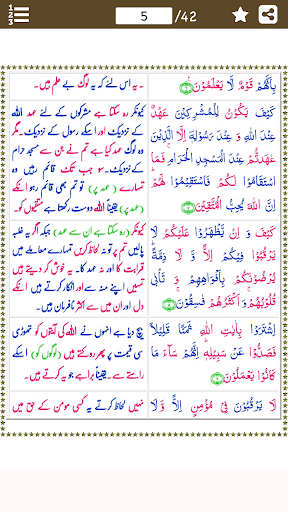 1
2
3
5
/42
بِاَنَّهُمْ قَوْمٌ لَّا يَعْلَمُوْنَ ۟﴿۶﴾
۔یہ اس لئے کہ یہ لوگ بے علم ہیں۔
كَيْفَ يَكُوْنُ لِلْمُشْرِكِيْنَ عَهْدٌ
عِنْدَ اللّٰهِ وَ عِنْدَ رَسُوْلِهٖۤ اِلَّا الَّذِيْنَ
عٰهَدْتُّمْ عِنْدَ الْمَسْجِدِ الْحَرَامِ ۚ فَمَا
اسْتَقَامُوْا لَكُمْ فَاسْتَقِيْمُوْا لَهُمْ ؕ
اِنَّ اللّٰهَ يُحِبُّ الْمُتَّقِيْنَ ﴿۷﴾
کیونکر رہ سکتا ہے مشرکوں کے لئے عہد اللہ
کے نزدیک اور اسکے رسول کے نزدیک۔ مگر
وہ لوگ عہد کیا ہے تم نے جن سے مسجد حرام
کے پاس۔ سو جب تک قائم رہیں وہ
تمہارے (عہد پر) تو تم بھی قائم رہو انکے
(عہد پر)۔ یقیناً اللہ دوست رکھتا ہے متقیوں کو۔
كَيْفَ وَ اِنْ يَّظْهَرُوْا عَلَيْكُمْ لَا
يَرْقُبُوْا فِيْكُمْ اِلًّا وَّ لَا ذِمَّةً ؕ
يُرْضُوْنَكُمْ بِاَفْوَاهِهِمْ وَ تَاْبٰى
قُلُوْبُهُمْ ۚ وَ اَكْثَرُهُمْ فٰسِقُوْنَ ﴿۸﴾
کیونکر (رہ سکتا ہے ان سے عہد) جبکہ اگر یہ غلبہ
پالیں تم پر تو نہ لحاظ کریں تمہارے معاملے میں
قرابت کا اور نہ عہد کا۔ یہ خوش کر دیتے ہیں
تمہیں اپنے منہ سے اور انکار کرتے ہیں انکے
دل اور ان میں سے اکثر نافرمان ہیں۔
اِشْتَرَوْا بِاٰيٰتِ اللّٰهِ ثَمَنًا قَلِيْلًا
فَصَدُّوْا عَنْ سَبِيْلِهٖ ؕ اِنَّهُمْ سَآءَ مَا
كَانُوْا يَعْمَلُوْنَ ﴿۹﴾
بیچ دیا ہے انہوں نے اللہ کی آیتوں کو تھوڑی
سی قیمت پر پھر روکتے ہیں (لوگوں کو) اسکے
راستے سے۔ یقیناً برا ہے جو یہ کرتے ہیں۔
لَا يَرْقُبُوْنَ فِيْ مُؤْمِنٍ اِلًّا وَّ لَا
نہیں لحاظ کرتے یہ کسی مومن کے حق میں